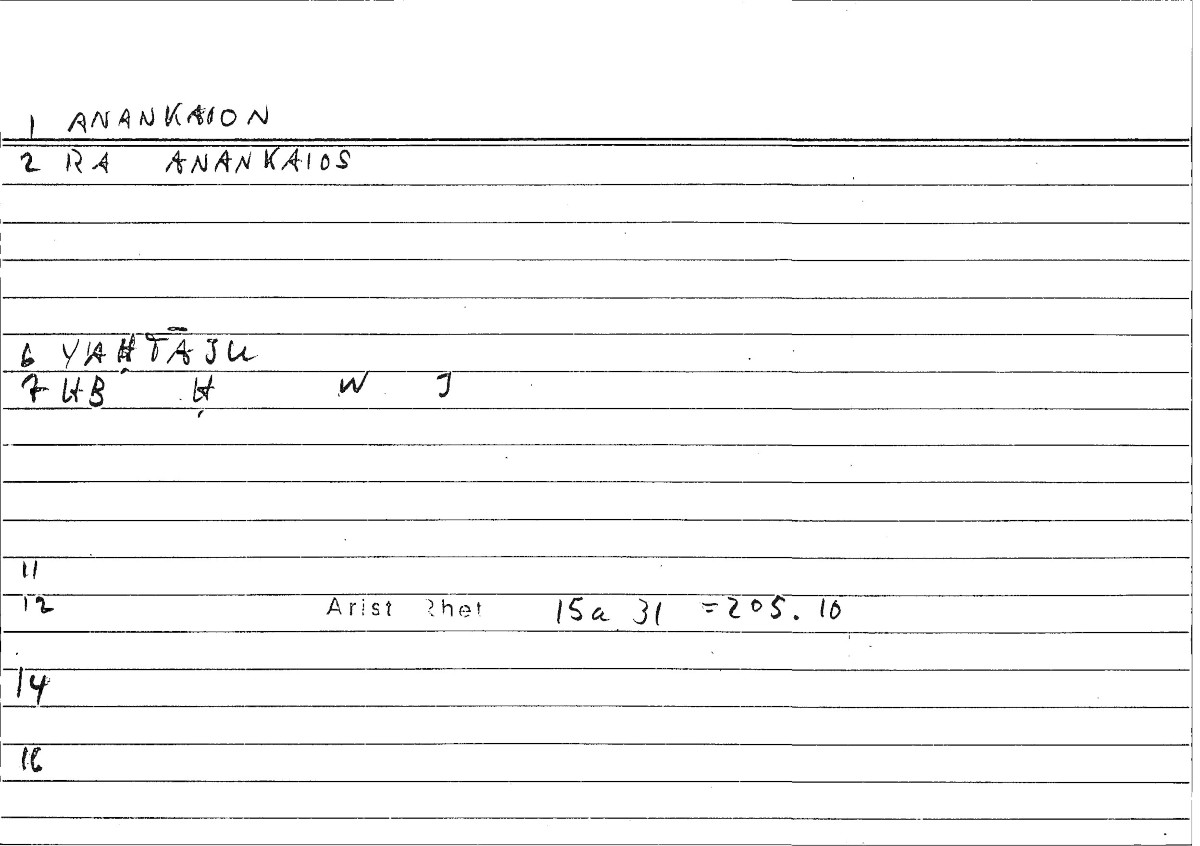 1 ANANKAION
2 RA ANANKAIOS
6 YAḤTĀJU
7 HB Ḥ W J
11
12 Arist Rhet 15a 31 =205.10
14
16